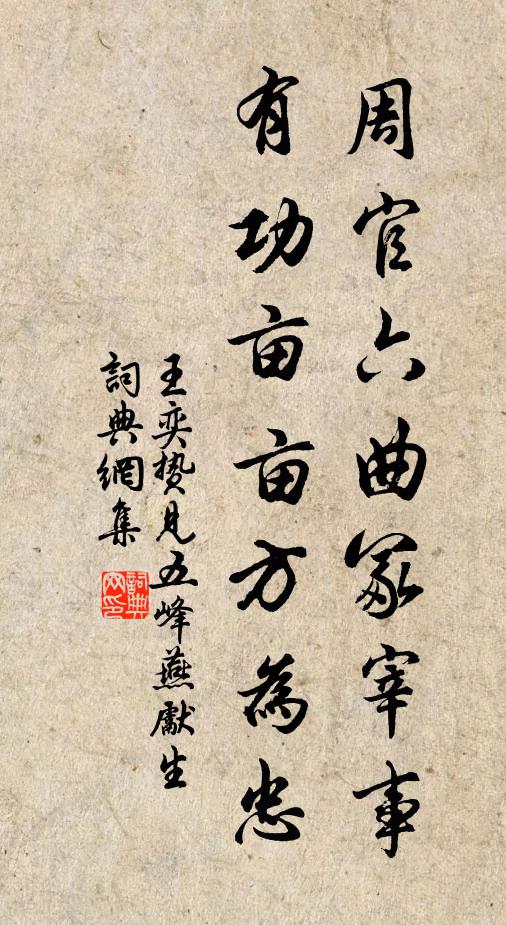 周官六曲冢宰事
有功亩亩方為忠
王奕贽見五峰燕獻生
詞典網集
詞典网印